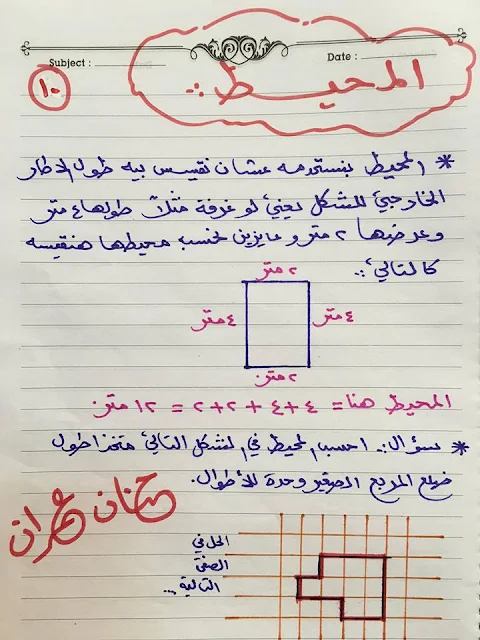 Subject :
Date :
المحيط ..
١٠
* المحيط بنستخدمه عشان نقيس بيه طول الاطار
الخارجي للشكل يعني لو غرفة مثلاً طولها ٤ متر
وعرضها ٢ متر و عايزين نحسب محيطها هنقيسه
كالتالي ..
٢ متر
٤ متر
٤ متر
٢ متر
المحيط هنا = ٤ + ٤ + ٢ + ٢ = ١٢ متر
* سؤال .. احسب المحيط في الشكل التالي متخذا طول
ضلع المربع الصغير وحدة للأطوال.
حنان عمران
الحل في
الصفحة
التالية ...